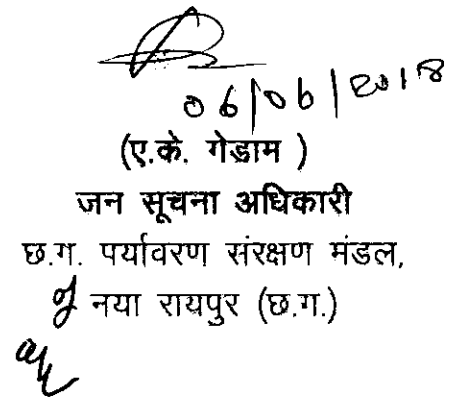 06/06/2018
(ए.के. गेडाम )
जन सूचना अधिकारी
छ.ग. पर्यावरण संरक्षण मंडल,
नया रायपुर (छ.ग.)